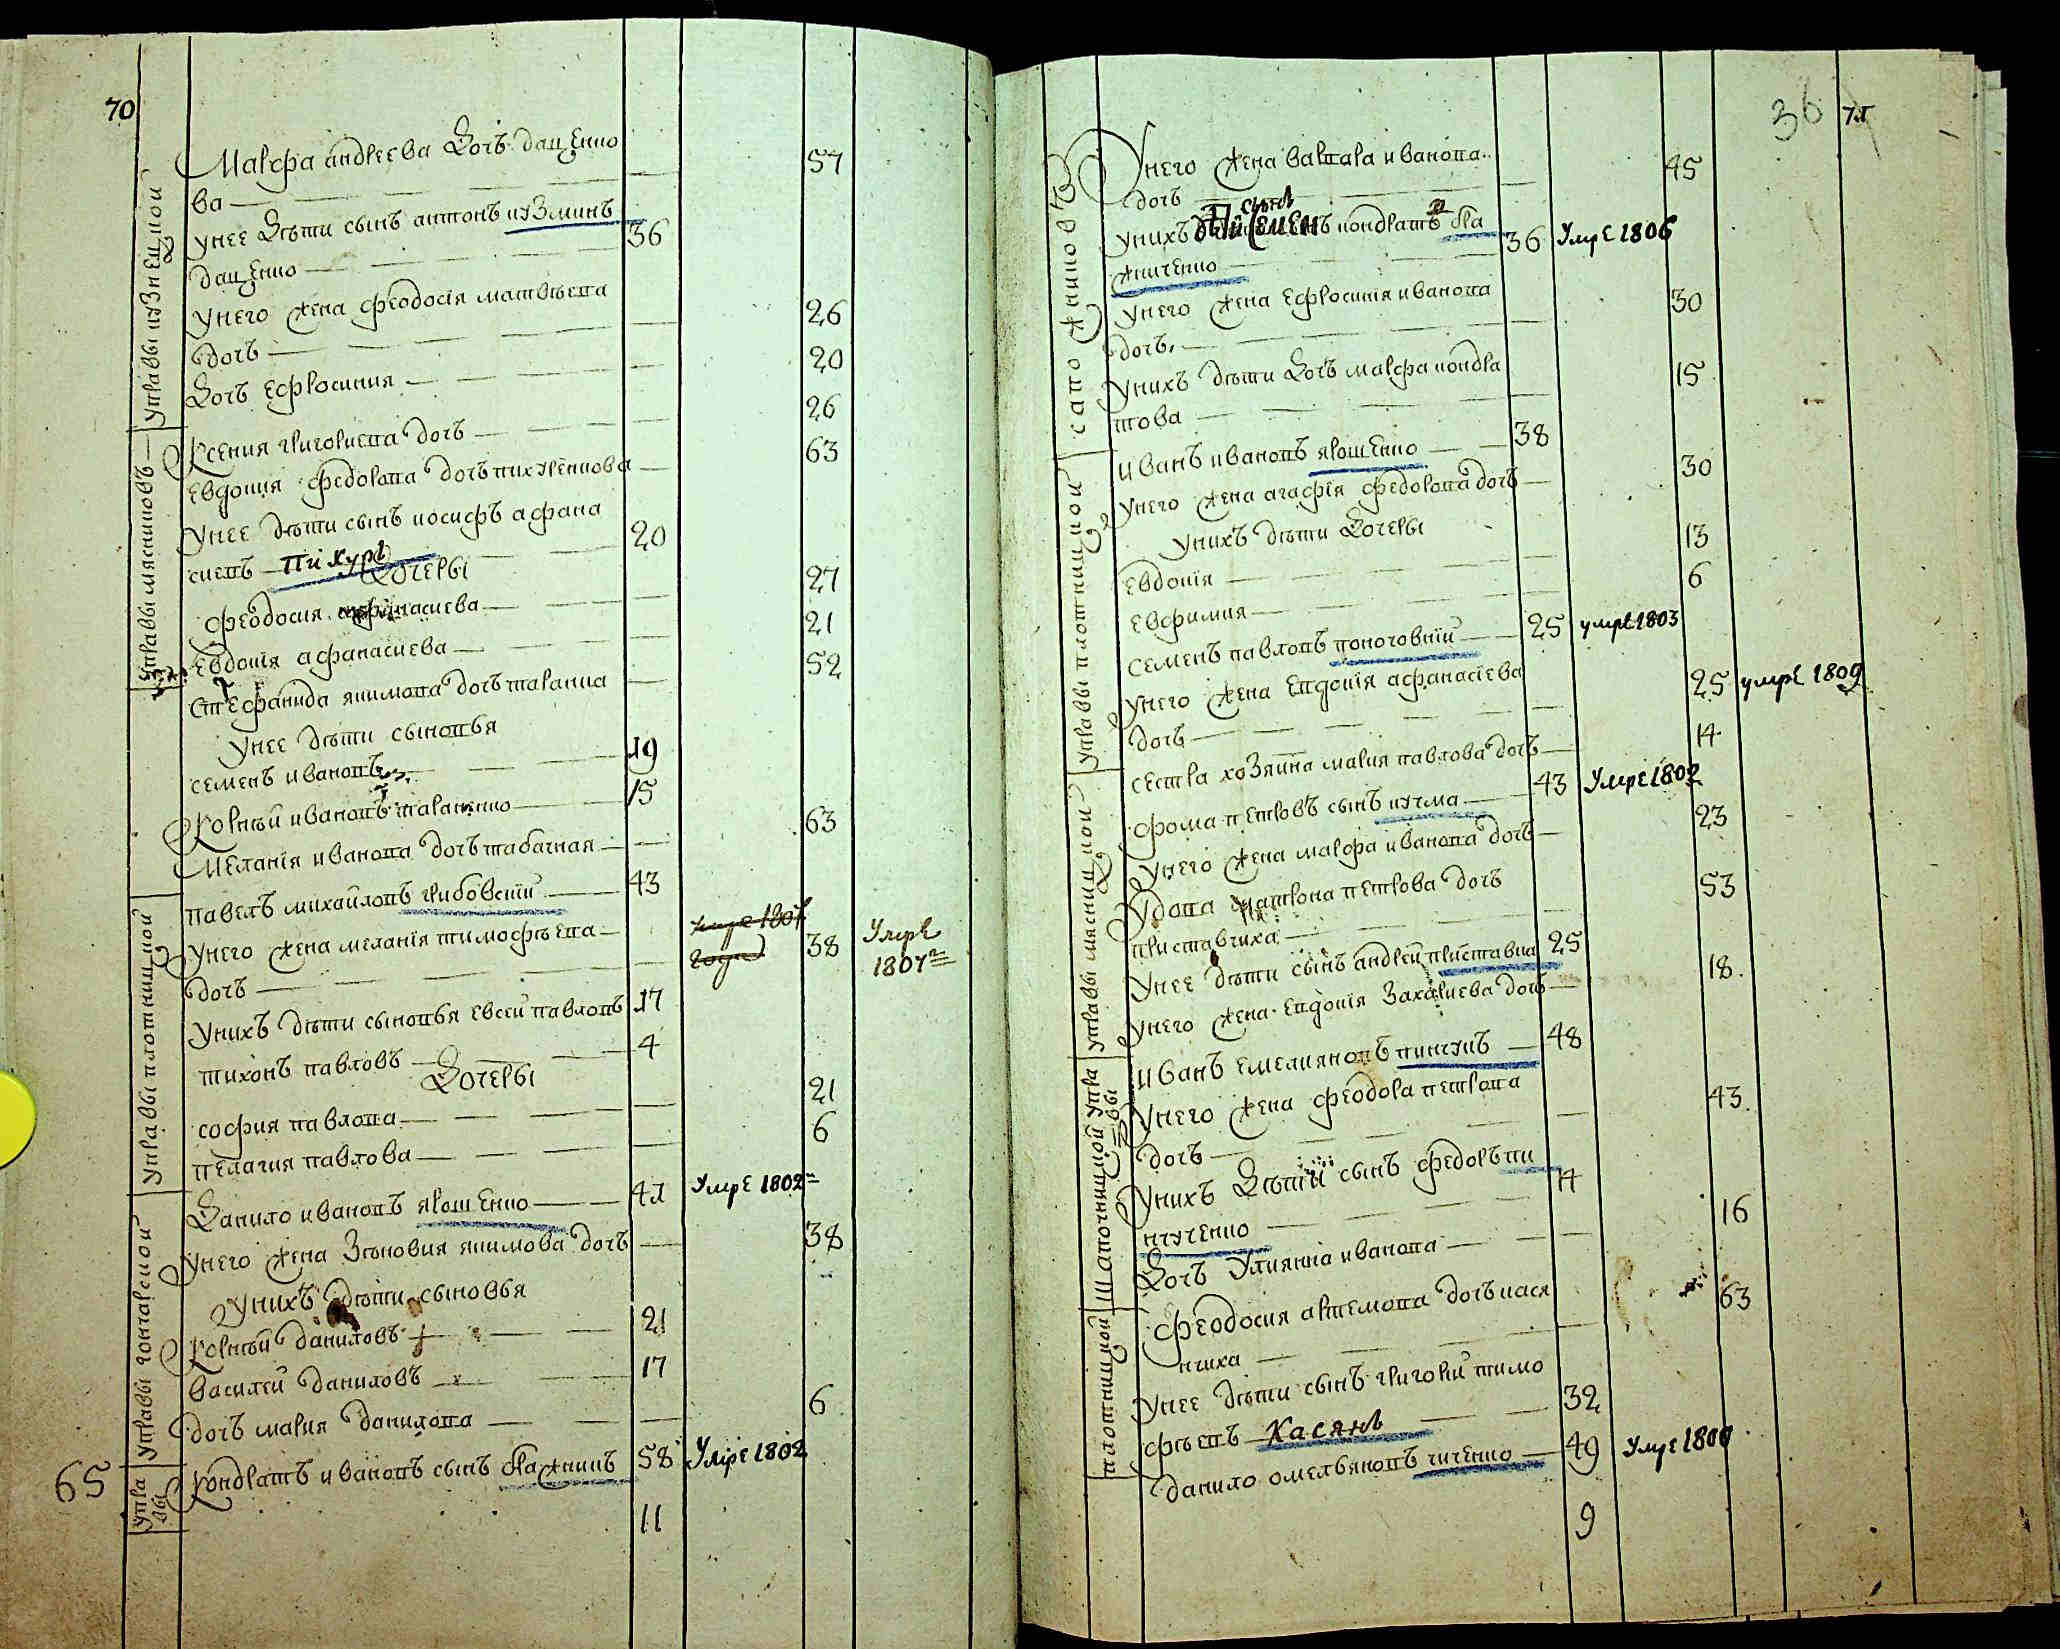 70
Управы кузнецкой
Марфа андреева Дочь дащенко
ва — 57
унее Дѣти сынъ антонъ кузминъ
дащенко — 36
унего жена феодосія матвѣева
дочь — 26
Дочь ефросиния — 20
Управы мясниковъ
Ксения григориева дочь — 26
евдокия федорова дочь пихуленкова — 63
унее дѣти сынъ иосифъ афана
сиевъ — Пихуръ 20
Дочери
феодосия афанасиева — 27
евдокія афанасиева — 21
Стефанида якимова дочь таранка — 52
унее дѣти сыновья
семенъ ивановъ — 19
Корнѣй ивановъ тараненко — 15
Меланія иванова дочь табачная — 63
Управы плотницкой
павелъ михайловъ грибовский — 43
унего жена меланія тимофѣева
дочь — 38 Умре 1807
умре 1807 года
унихъ дѣти сыновья евсей павловъ 17
тихонъ павловъ — 4
Дочери
софия павлова — 21
пелагия павлова — 6
Управы гончарской
Данило ивановъ ярошенко — 41 Умре 1802
унего жена Зѣновия якимова дочь — 38
унихъ дѣти сыновья
Корнѣй даниловъ — 21
василей даниловъ — 17
дочь мария данилова — 6
управы
65
Кондратъ ивановъ сынъ бражникъ 58 Умре 1802
11
36 71
сапожниковъ
Унего жена варвара иванова
дочь — 45
унихъ сынъ Семенъ кондратъ бра
жниченко — 36 Умре 1806
унего жена ефросинія иванова
дочь — 30
унихъ дѣти Дочь марфа кондра
това — 15
Управы плотницкой
иванъ ивановъ ярошенко — 38
унего жена агафія федорова дочь — 30
унихъ дѣти Дочеры
евдокія — 13
евфимия — 6
семенъ павловъ коноговкій — 25 умре 1803
унего жена евдокія афанасіева
дочь — 25 умре 1809
сестра хозяина мария павлова дочь — 14
Управы мясницкой
фома петровъ сынъ кучма — 43 Умре 1802
унего жена марфа иванова дочь — 23
Удова матрона петрова дочь
приставчиха — 53
унее дѣти сынъ андрей приставка 25
унего жена евдокія Захариева дочь — 18
Шапочницкой управы
иванъ емелияновъ пинчукъ — 48
унего жена феодора петрова
дочь — 43
унихъ Дѣти сынъ федоръ пи
нчученко — 14
Дочь Улиянна иванова — 16
плотницкой
феодосия артемова дочь кася
нчиха — 63
унее дѣти сынъ григорий тимо
фѣевъ — Касянъ 32
данило омельяновъ чиченко — 49 Умре 1800
9